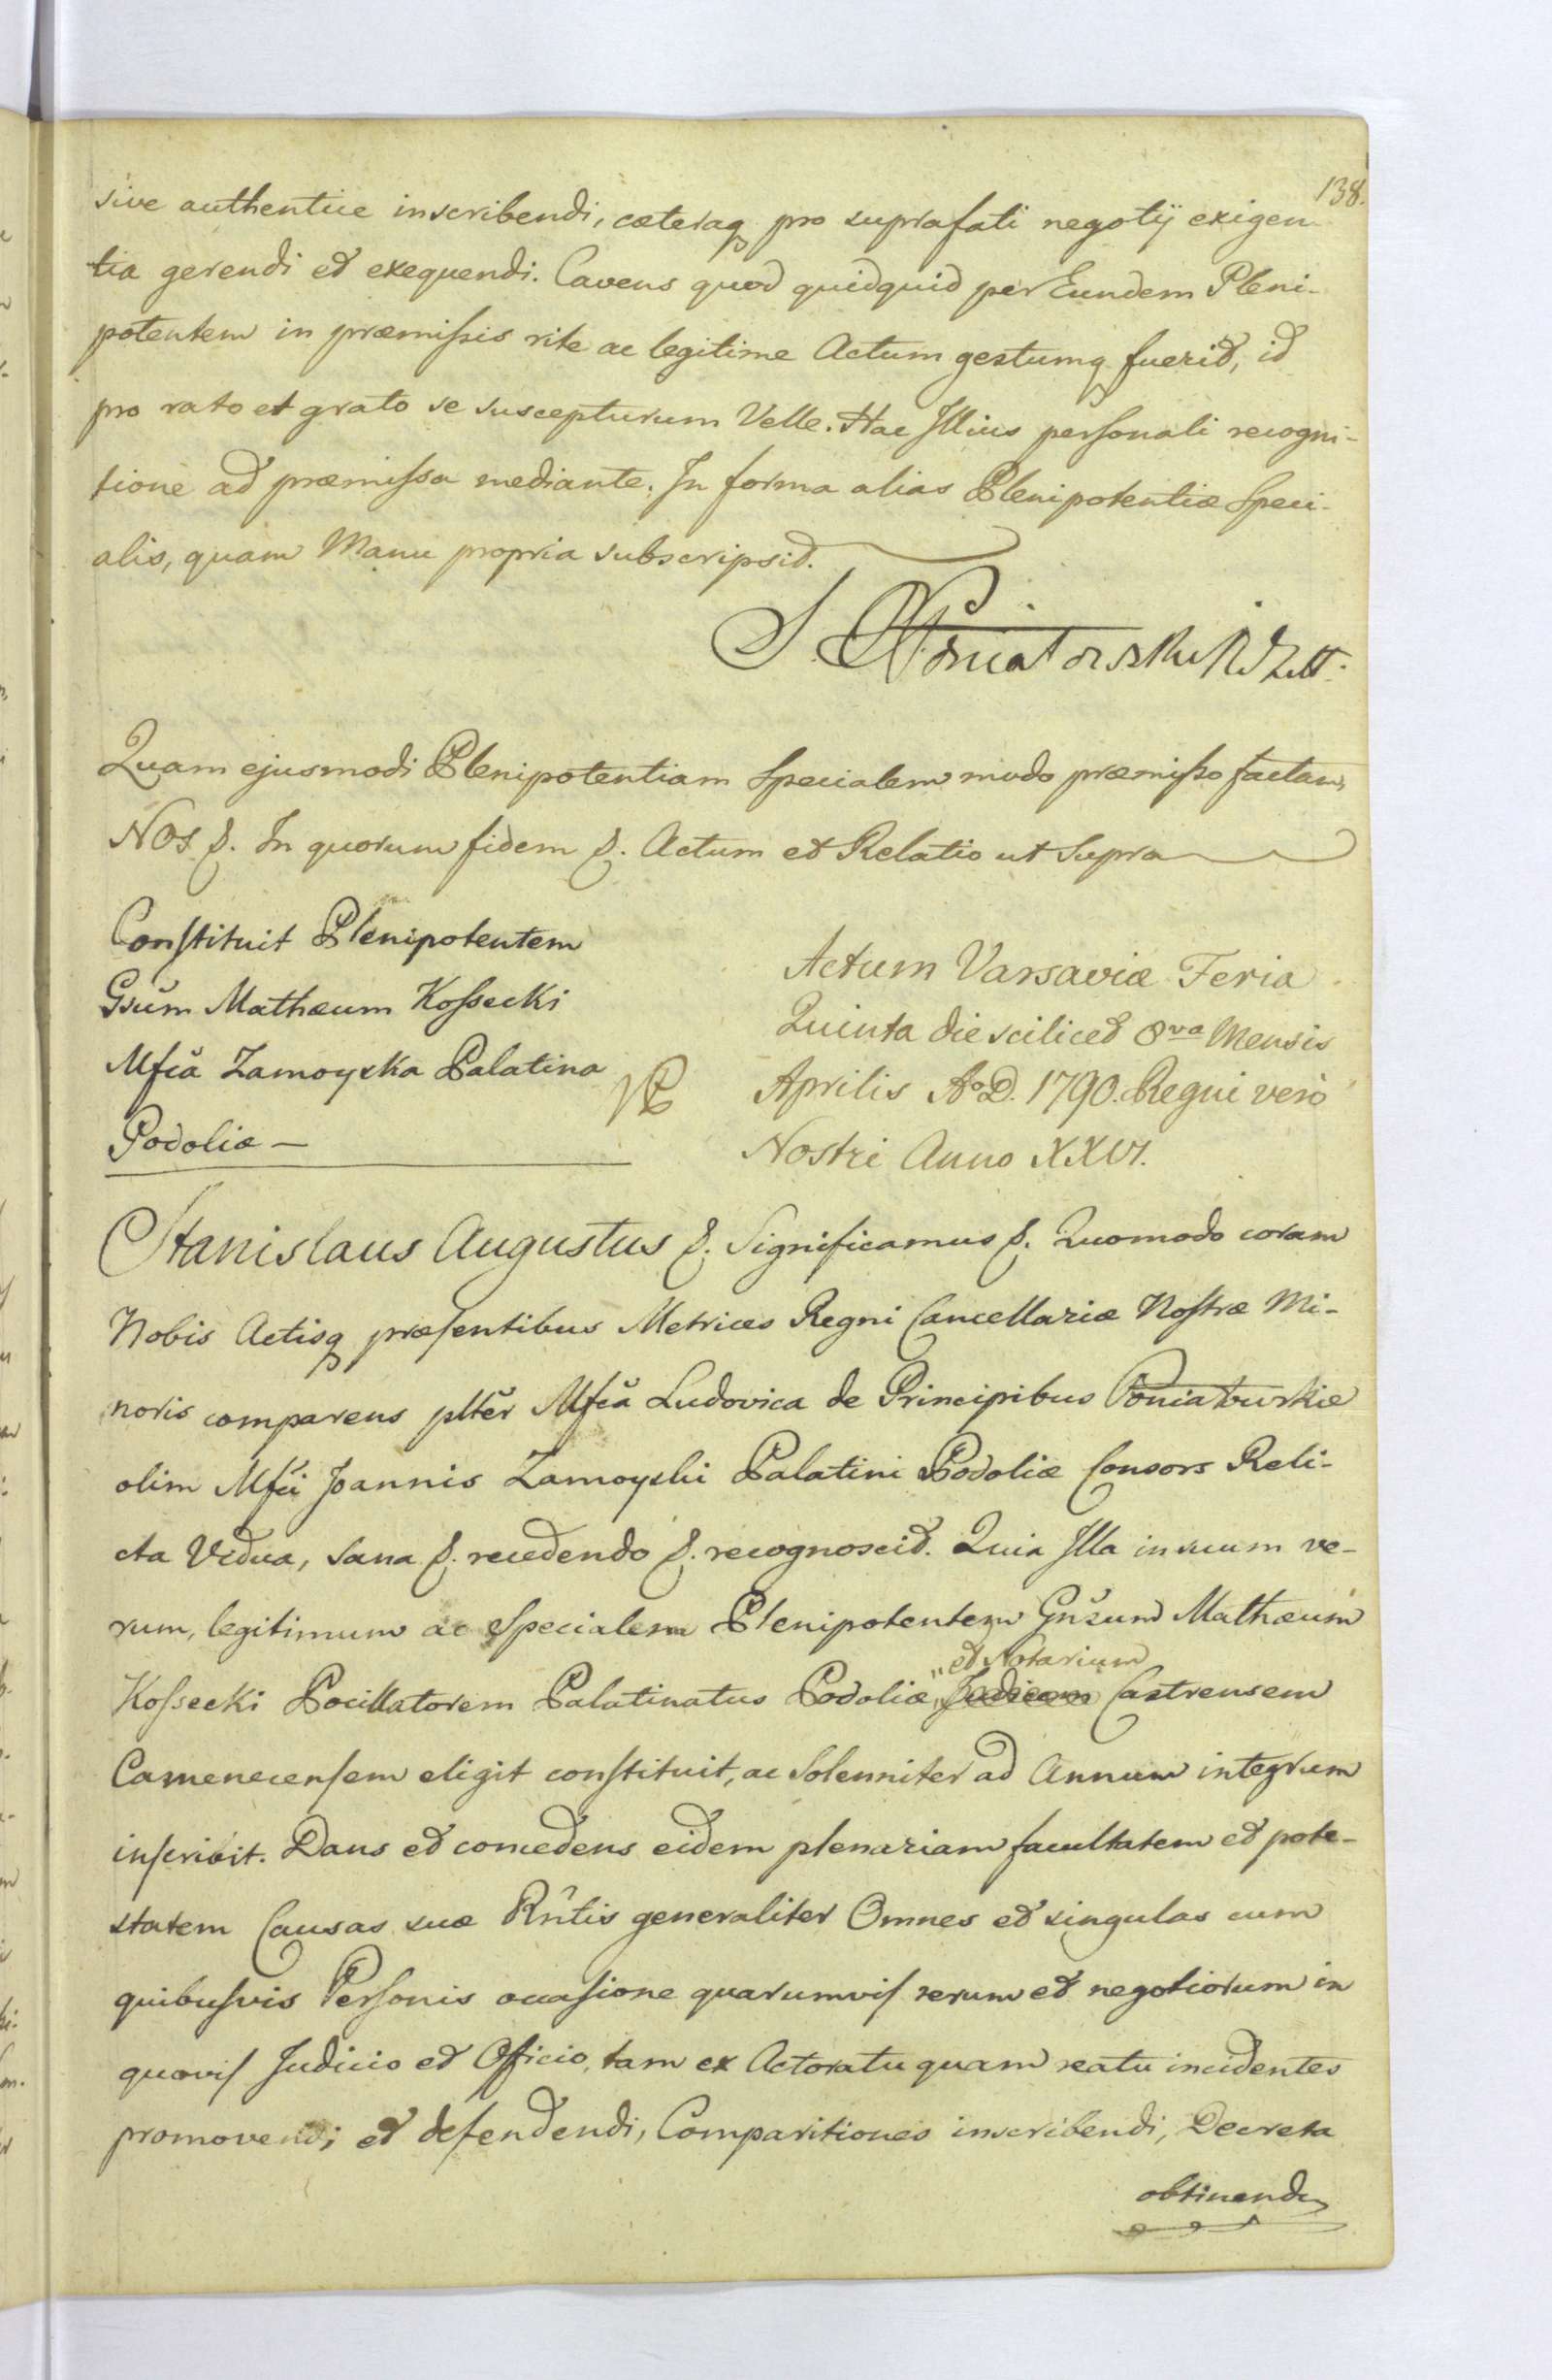 138.
sive authentice inscribendi, cæteraq pro suprafati negotij exigen
tia gerendi et exequendi. Cavens quod quidquid per Eundem Pleni-
potentem in præmissis rite ac legitime Actum gestumq fuerit, id
pro rato et grato se suscepturum Velle. Hac Illius personali recogni-
tione ad præmissa mediante. In forma alias Plenipotentiæ Speci-
alis, quam Manu propria subscripsit.
S. Poniatowski
Quam ejusmodi Plenipotentiam Specialem modo præmisso factam,
NOS &. In quorum fidem &. Actum et Relatio ut Supra
Constituit Plenipotentem
Gsŭm Mathæum Kossecki
Mfcă Zamoyska Palatina
Podoliæ —
Actum Varsaviæ Feria
Quinta die scilicet 8va Mensis
Aprilis Ao D. 1790. Regni vero
Nostri Anno XXVI.
Stanislaus Augustus &. Significamus &. Quomodo coram
Nobis Actisq præsentibus Metrices Regni Cancellariæ Nostræ Mi-
noris comparens pltĕr Mfcă Ludovica de Principibus Poniatowskie
olim Mfci Joannis Zamoyski Palatini Podoliæ Consors Reli-
cta Vidua, sana &. recedendo &. recognoscit. Quia Illa in suum ve-
rum, legitimum ac Specialem Plenipotentem Gnsum Mathæum
et Notarium
Kossecki Pocillatorem Palatinatus Podoliæ, Judicem Castrensem
Camenecensem eligit constituit, ac Solenniter ad Annum integrum
inscribit. Dans et concedens eidem plenariam facultatem et pote-
statem Causas suæ Rn̂tis generaliter Omnes et singulas cum
quibusvis Personis occasione quarumvis rerum et negotiorum in
quovis Judicio et Officio, tam ex Actoratu quam reatu incidentes
promovendi et defendendi, Comparitiones inscribendi, Decreta
obtinendi